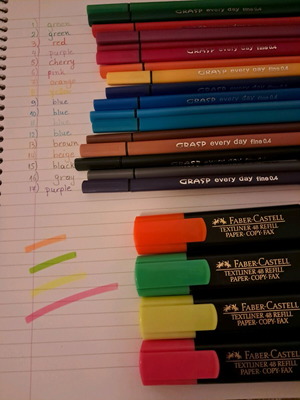 1) green
2) green
3) red
4) purple
5) cherry
6) pink
7) orange
9) blue
10) blue
blue
12) blue
13) brown
14) beige
15) black
16) gray
17) purple
GRASP every day fine 0.4
GRASP every day fine 0.4
GRASP every day fine 0.4
GRASP every day fine 0.4
GRASP every day fine 0.4
GRASP every day fine 0.4
FABER-CASTELL
TEXTLINER 48 REFILL
PAPER-COPY-FAX
FABER-CASTELL
TEXTLINER 48 REFILL
PAPER-COPY-FAX
FABER-CASTELL
TEXTLINER 48 REFILL
PAPER-COPY-FAX
FABER-CASTELL
TEXTLINER 48 REFILL
PAPER-COPY-FAX